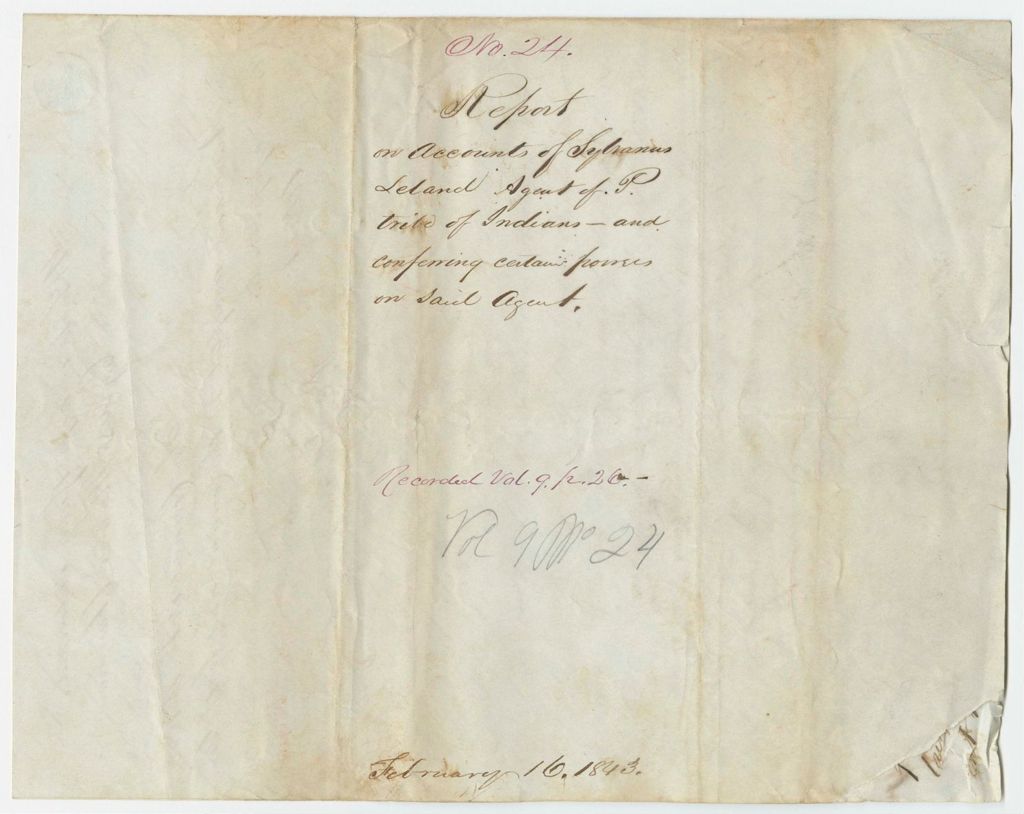 No. 24.
Report
on Accounts of Sylvanus
Leland Agent of P.
tribe of Indians — and
conferring certain powers
on said Agent.
Recorded Vol. 9. p. 26. –
Vol 9 No 24
February 16, 1843.